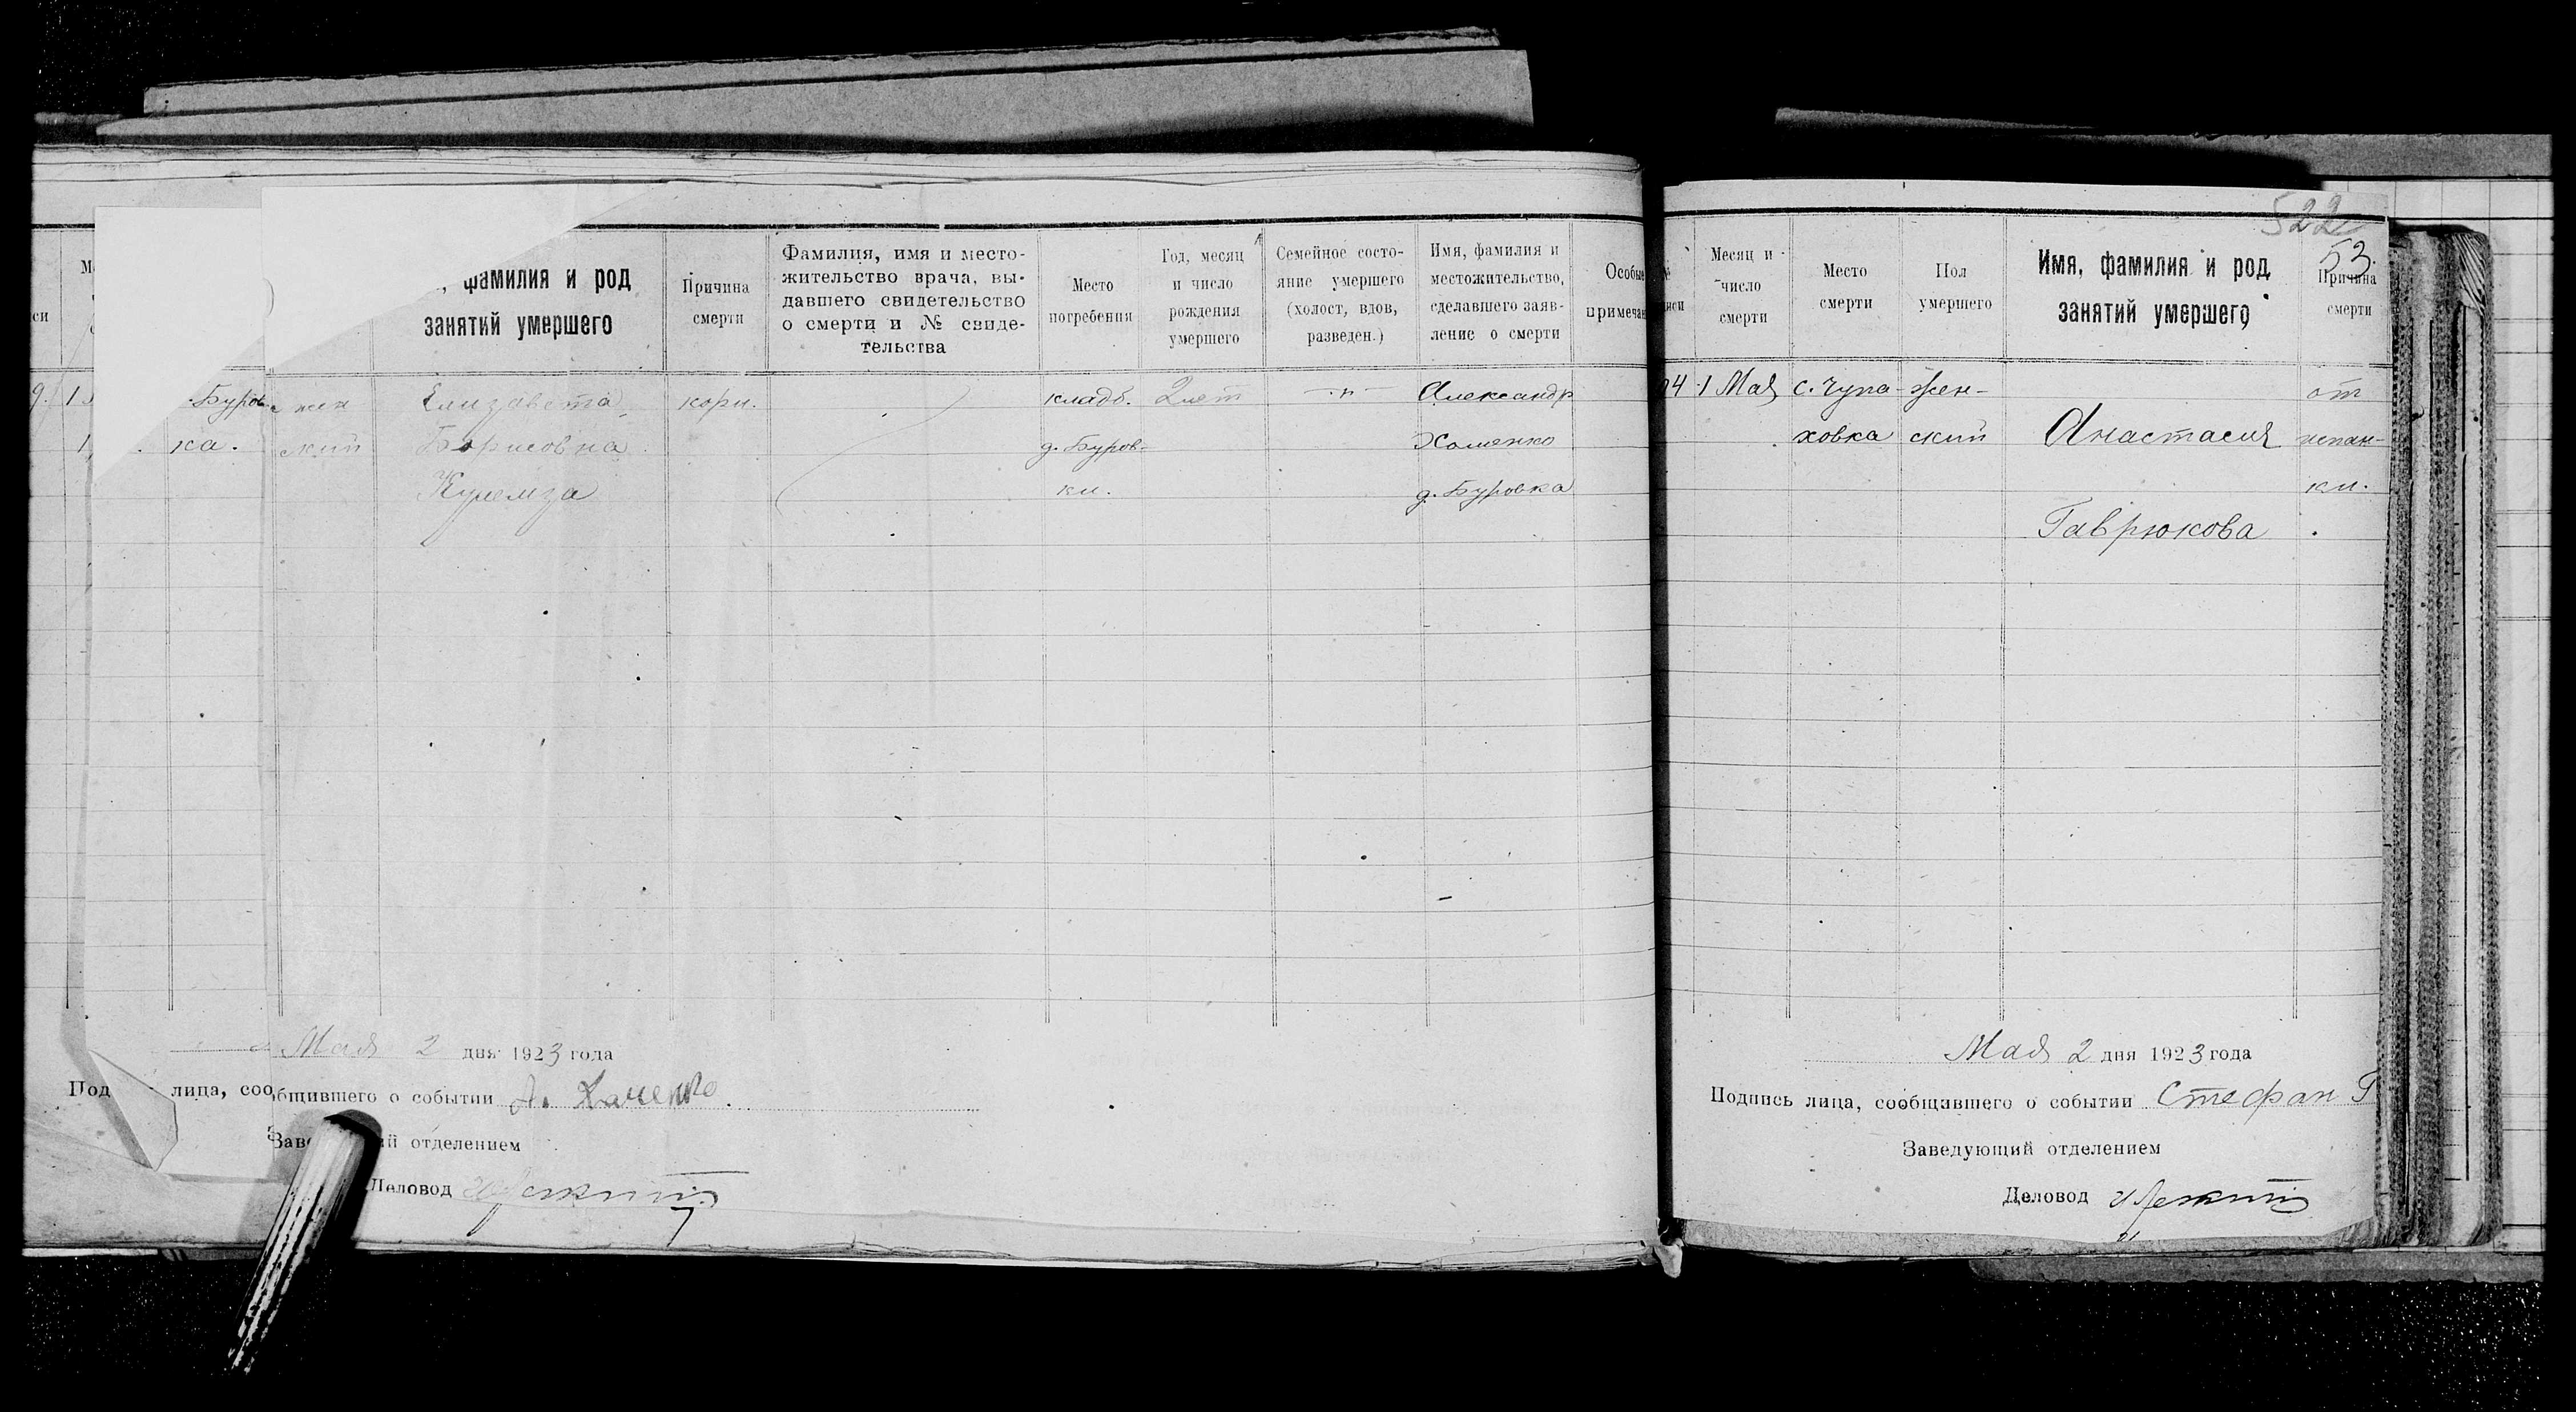 522
53.
фамилия и род
занятий умершего
Причина
смерти
Фамилия, имя и место-
жительство врача, вы-
давшего свидетельство
о смерти и № свиде-
тельства
Место
погребения
Год, месяц
и число
рождения
умершего
Семейное состо-
яние умершего
(холост, вдов,
разведен.)
Имя, фамилия и
местожительство,
сделавшего заяв-
ление о смерти
Особые
примечан
Буров- жен Елизавета кори. кладб. 2 лет -"- Александр
ка. ский Борисовна д. Буров- Хоменко
ки. д. Буровка
Мая 2 дня 1923 года
Под лица, сообщившего о событии А. Хоменко
Зав ий отделением
Деловод
Месяц и
число
смерти
Место
смерти
Пол
умершего
Имя, фамилия и род
занятий умершего
Причина
смерти
1 Мая с. Чупа- Жен- от
ховка ский Анастасия испан-
ки.
Гаврюкова
Мая 2 дня 1923 года
Подпись лица, сообщившего о событии Стефан Г
Заведующий отделением
Деловод